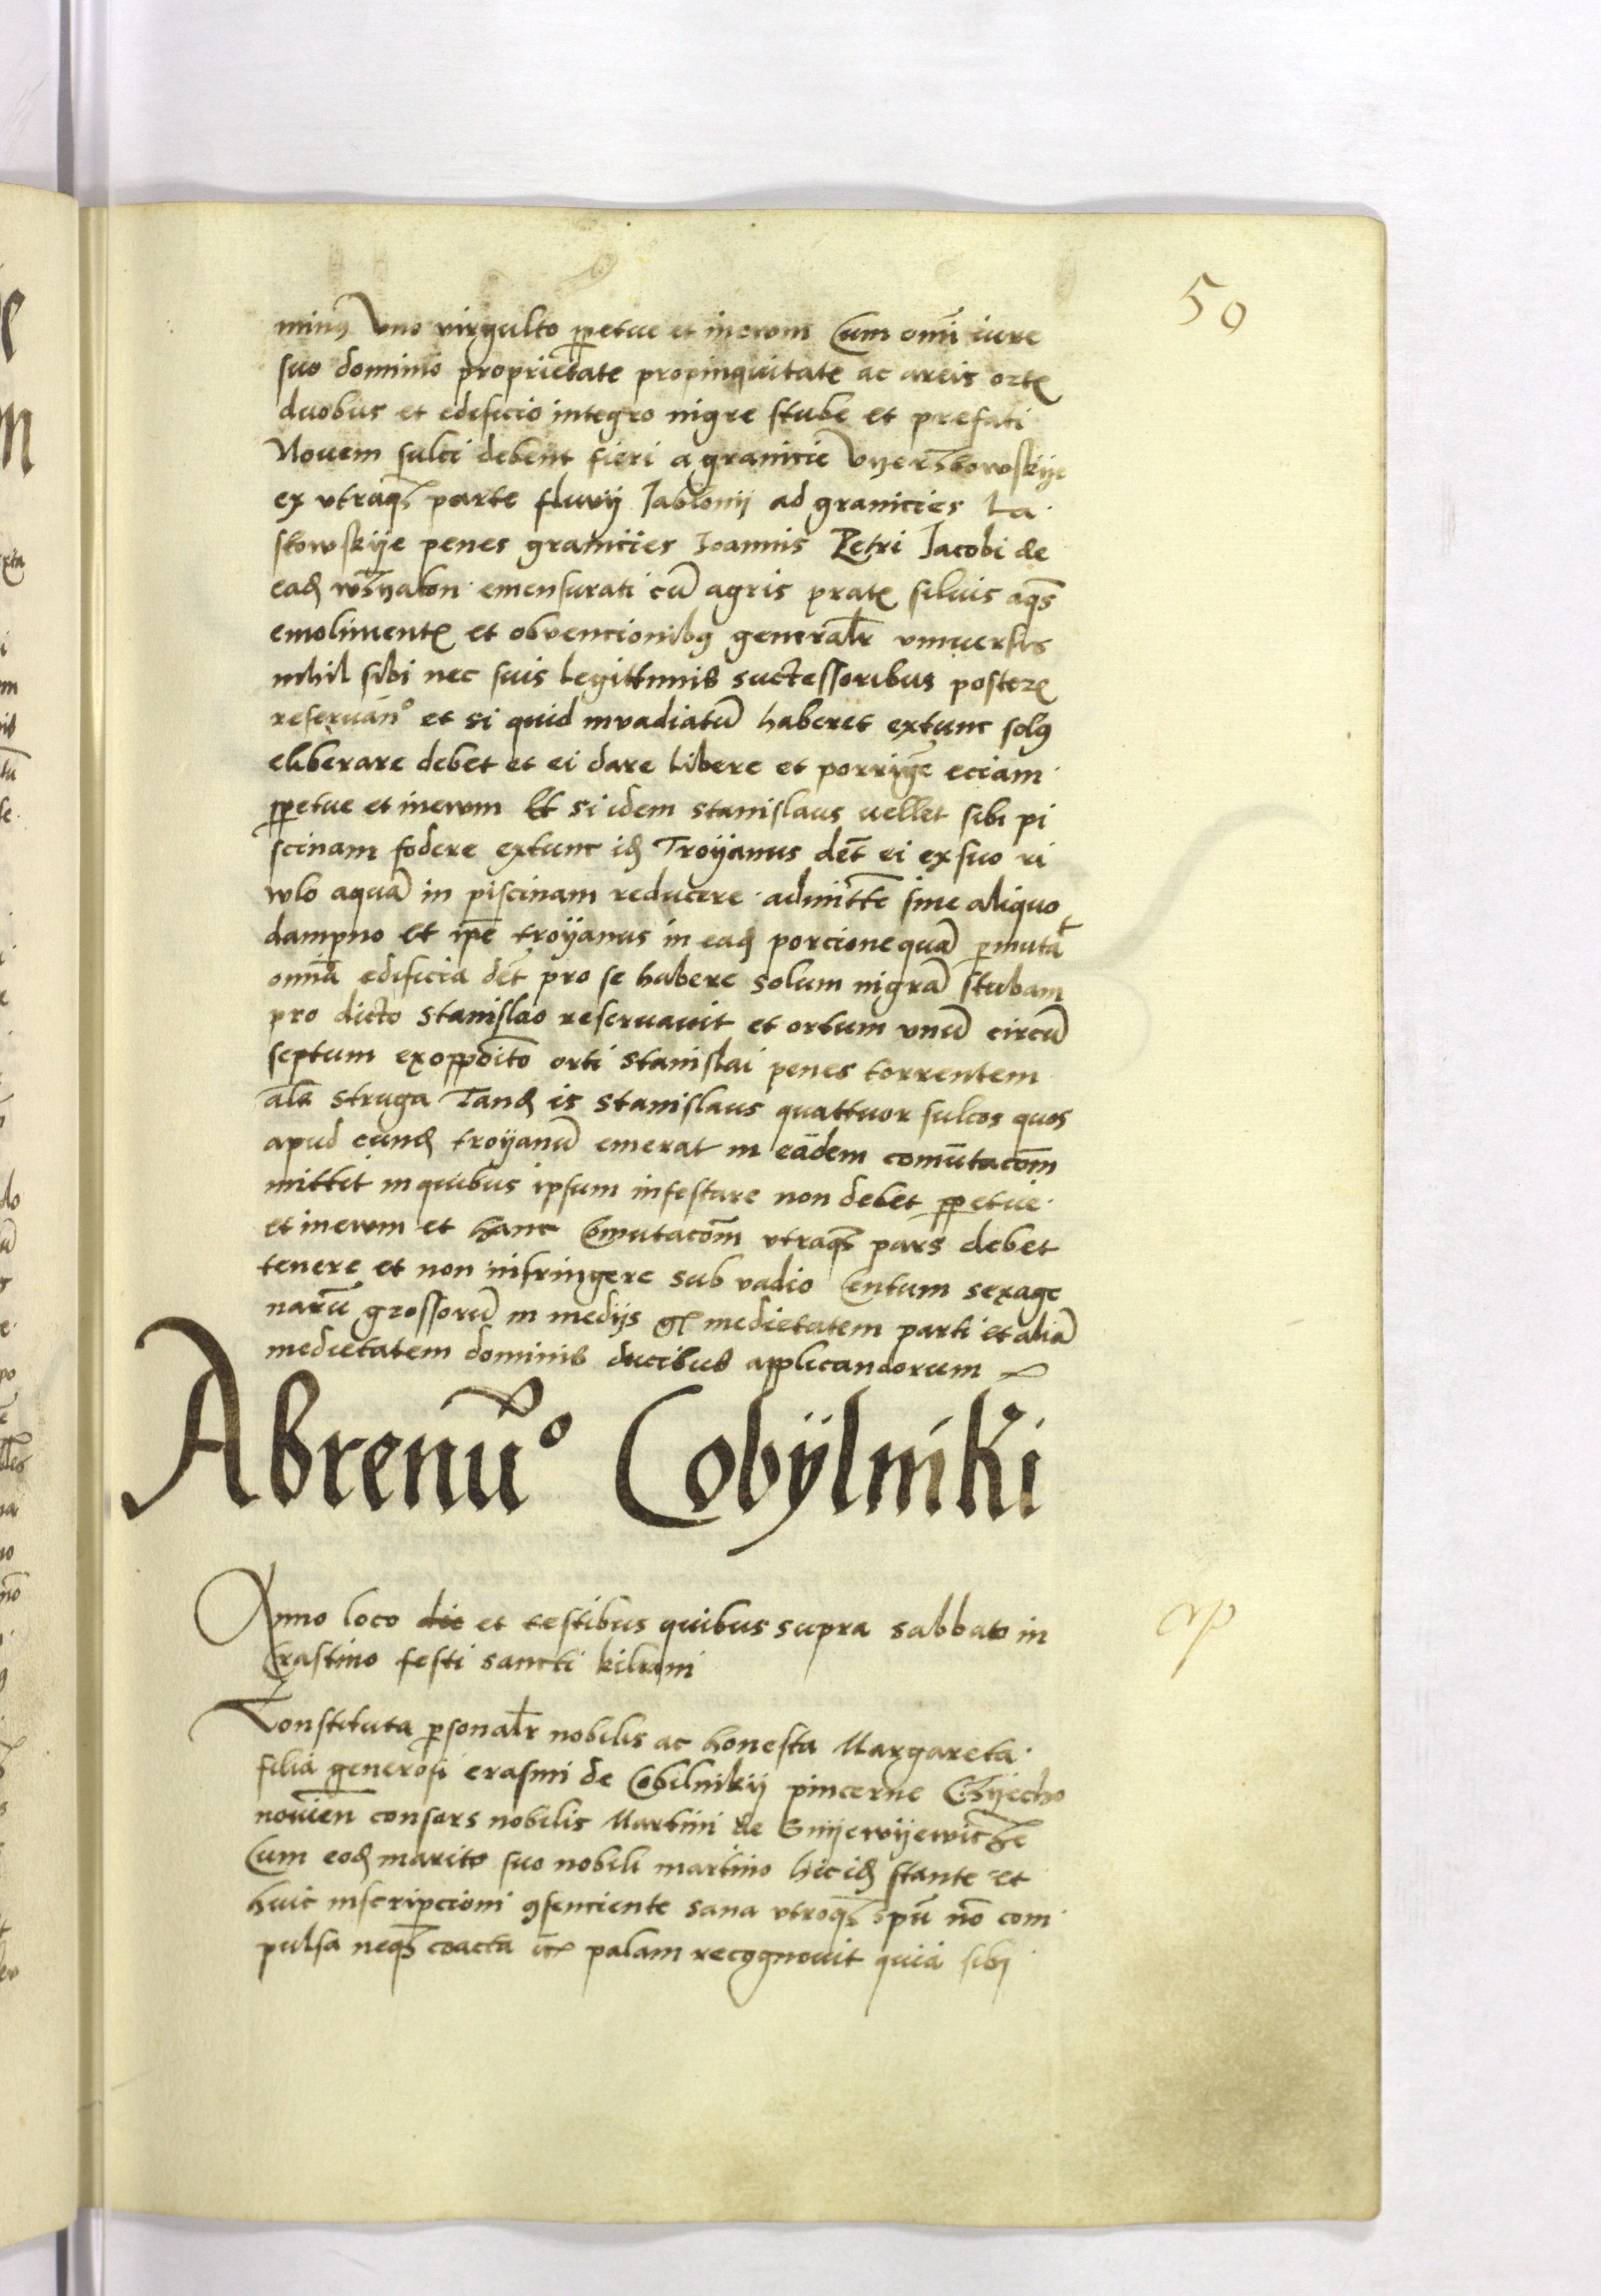 50
minus uno virgulto ppetue et inewm Cum omi iure
suo dominio proprietate propinquitate ac areis ort
duobus et edificio integro nigre stube et prefati
Novem sulci debent fieri a granicie
ex utraqs parte fluvij Jablonij ad granicies La
stowskije penes granicies Joannis Petri Jacobi de
ead emensurati cu agris prat siluis aqs
emoliment et obvencionibus generalr vniuersis
nihil sibi nec suis legittimis suctessoribus poster
reseruano et si quid invadiatu haberet extunc solus
eliberare debet et ei dare libere et porrige eciam
ppetue et inewm Et si idem Stanislaus uellet sibi pi
scinam fodere extunc id Troyanus det ei ex suo ri
wlo aqua in piscinam reducere admitte sine aliquo
dampno et ipe troyanus in ead porcione qua pmutat
omia edificia det pro se habere solum nigra stubam
pro dicto Stanislao reseruauit et ortum unu circu
septum exopposito orti Stanislai penes torrentem
als Struga Tand is Stanislaus quattuor sulcos quos
apud eund troyanu emerat in eadem comutacom
mittit in quibus ipsum infestare non debet ppetue
et inewm et hanc comutacom utraqs pars debet
tenere et non infringere sub vadio Centum sexage
naru grossoru in medijs gr medietatem parti et alia
medietatem dominis ducibus applicandorum
Abrenuo Cobijlniki
Anno loco die et testibus quibus supra sabbato in
Crastino festi sancti kiliani
Constituta psonalr nobilis ac honesta Margareta
filia generosi erasmi de Cobilnikij pincerne Czijecho
novien consors nobilis Martini de
Cum eod marito suo nobili martino hic id stante et
huic inscripcioni gsenciente sana utroqs spu no com
pulsa neqs coacta palam recognouit quia sibi